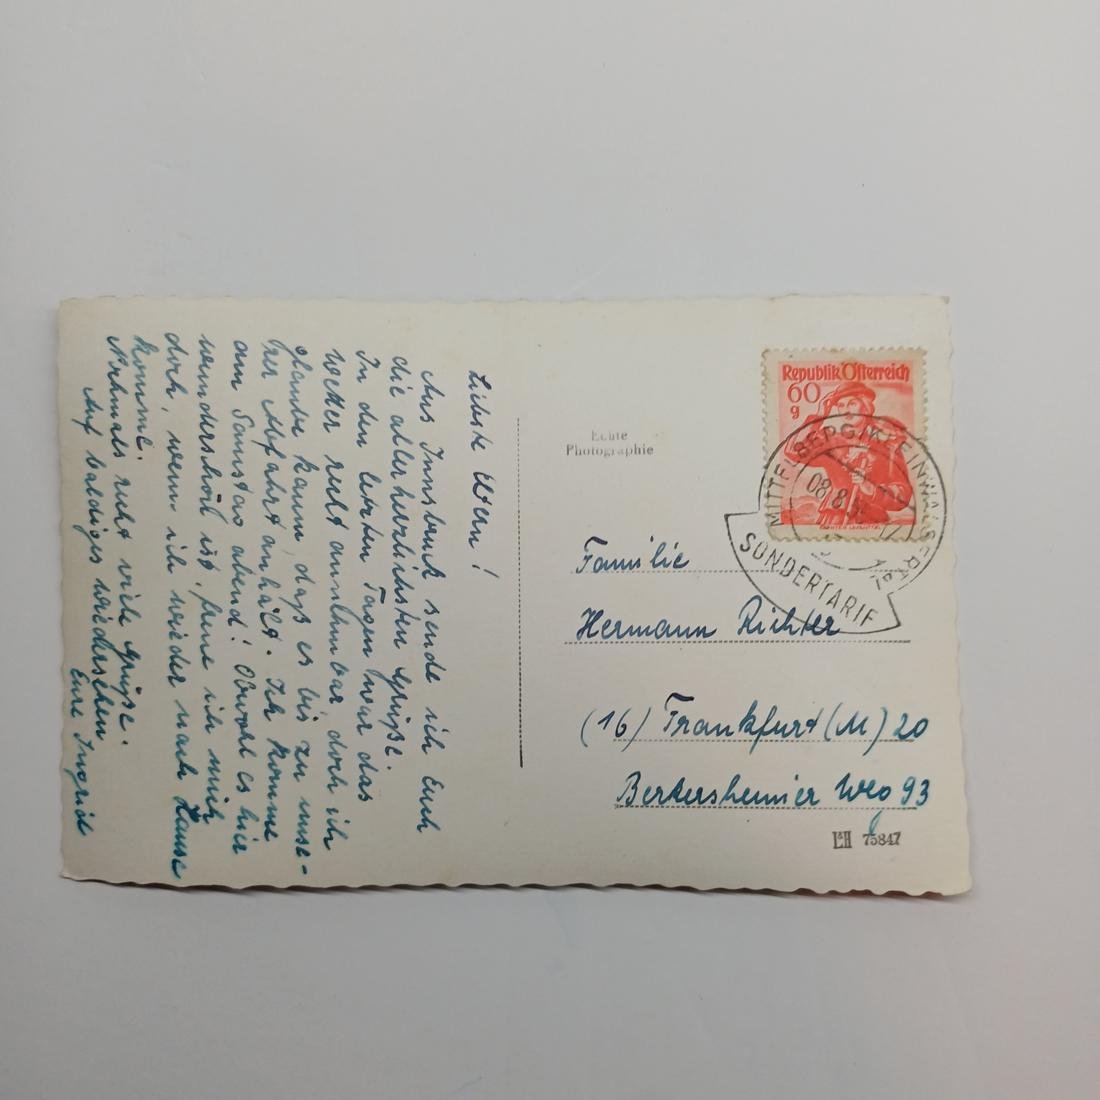 Liebste Eltern!
Aus Innsbruck sende ich Euch
die allerherzlichsten Grüße.
In den letzten Tagen war das
Wetter recht annehmbar, doch ich
glaube kaum, dass es bis zu unse-
rer Abfahrt anhält. Ich komme
am Sonnstag abend! Obwohl es hier
wunderschön ist, freue ich mich
doch, wenn ich wieder nach Hause
komme.
Nochmals recht viele Grüße.
Auf baldiges Wiedersehen
Eure Ingrid
Echte
Photographie
Republik Österreich
60
g
MITTELBERG/KLEINWALSERTAL
08.8.
SONDERTARIF
Familie
Hermann Richter
(16) Frankfurt (M) 20
Berkersheimer Weg 93
L&H 75847